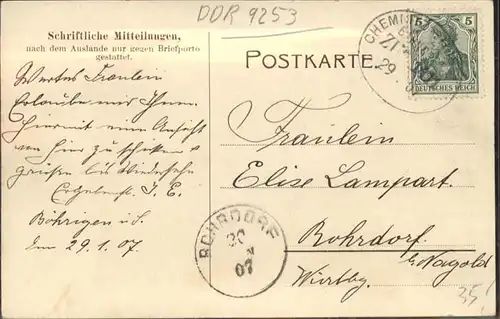 DDR 9253
Schriftliche Mitteilungen,
nach dem Auslande nur gegen Briefporto
gestattet.
Wertes Fräulein
Erlaube mir Ihnen
hiermit eine Ansicht
von hier zu schicken
grüßen bis Wiedersehn
J. E.
Böhrigen i/S.
den 29.1.07.
POSTKARTE.
CHEMN
29
5 5
DEUTSCHES REICH
Fräulein
Elise Lampart.
Rohrdorf
b/Nagold
Wirtbg.
ROHRDORF
30
07
35!